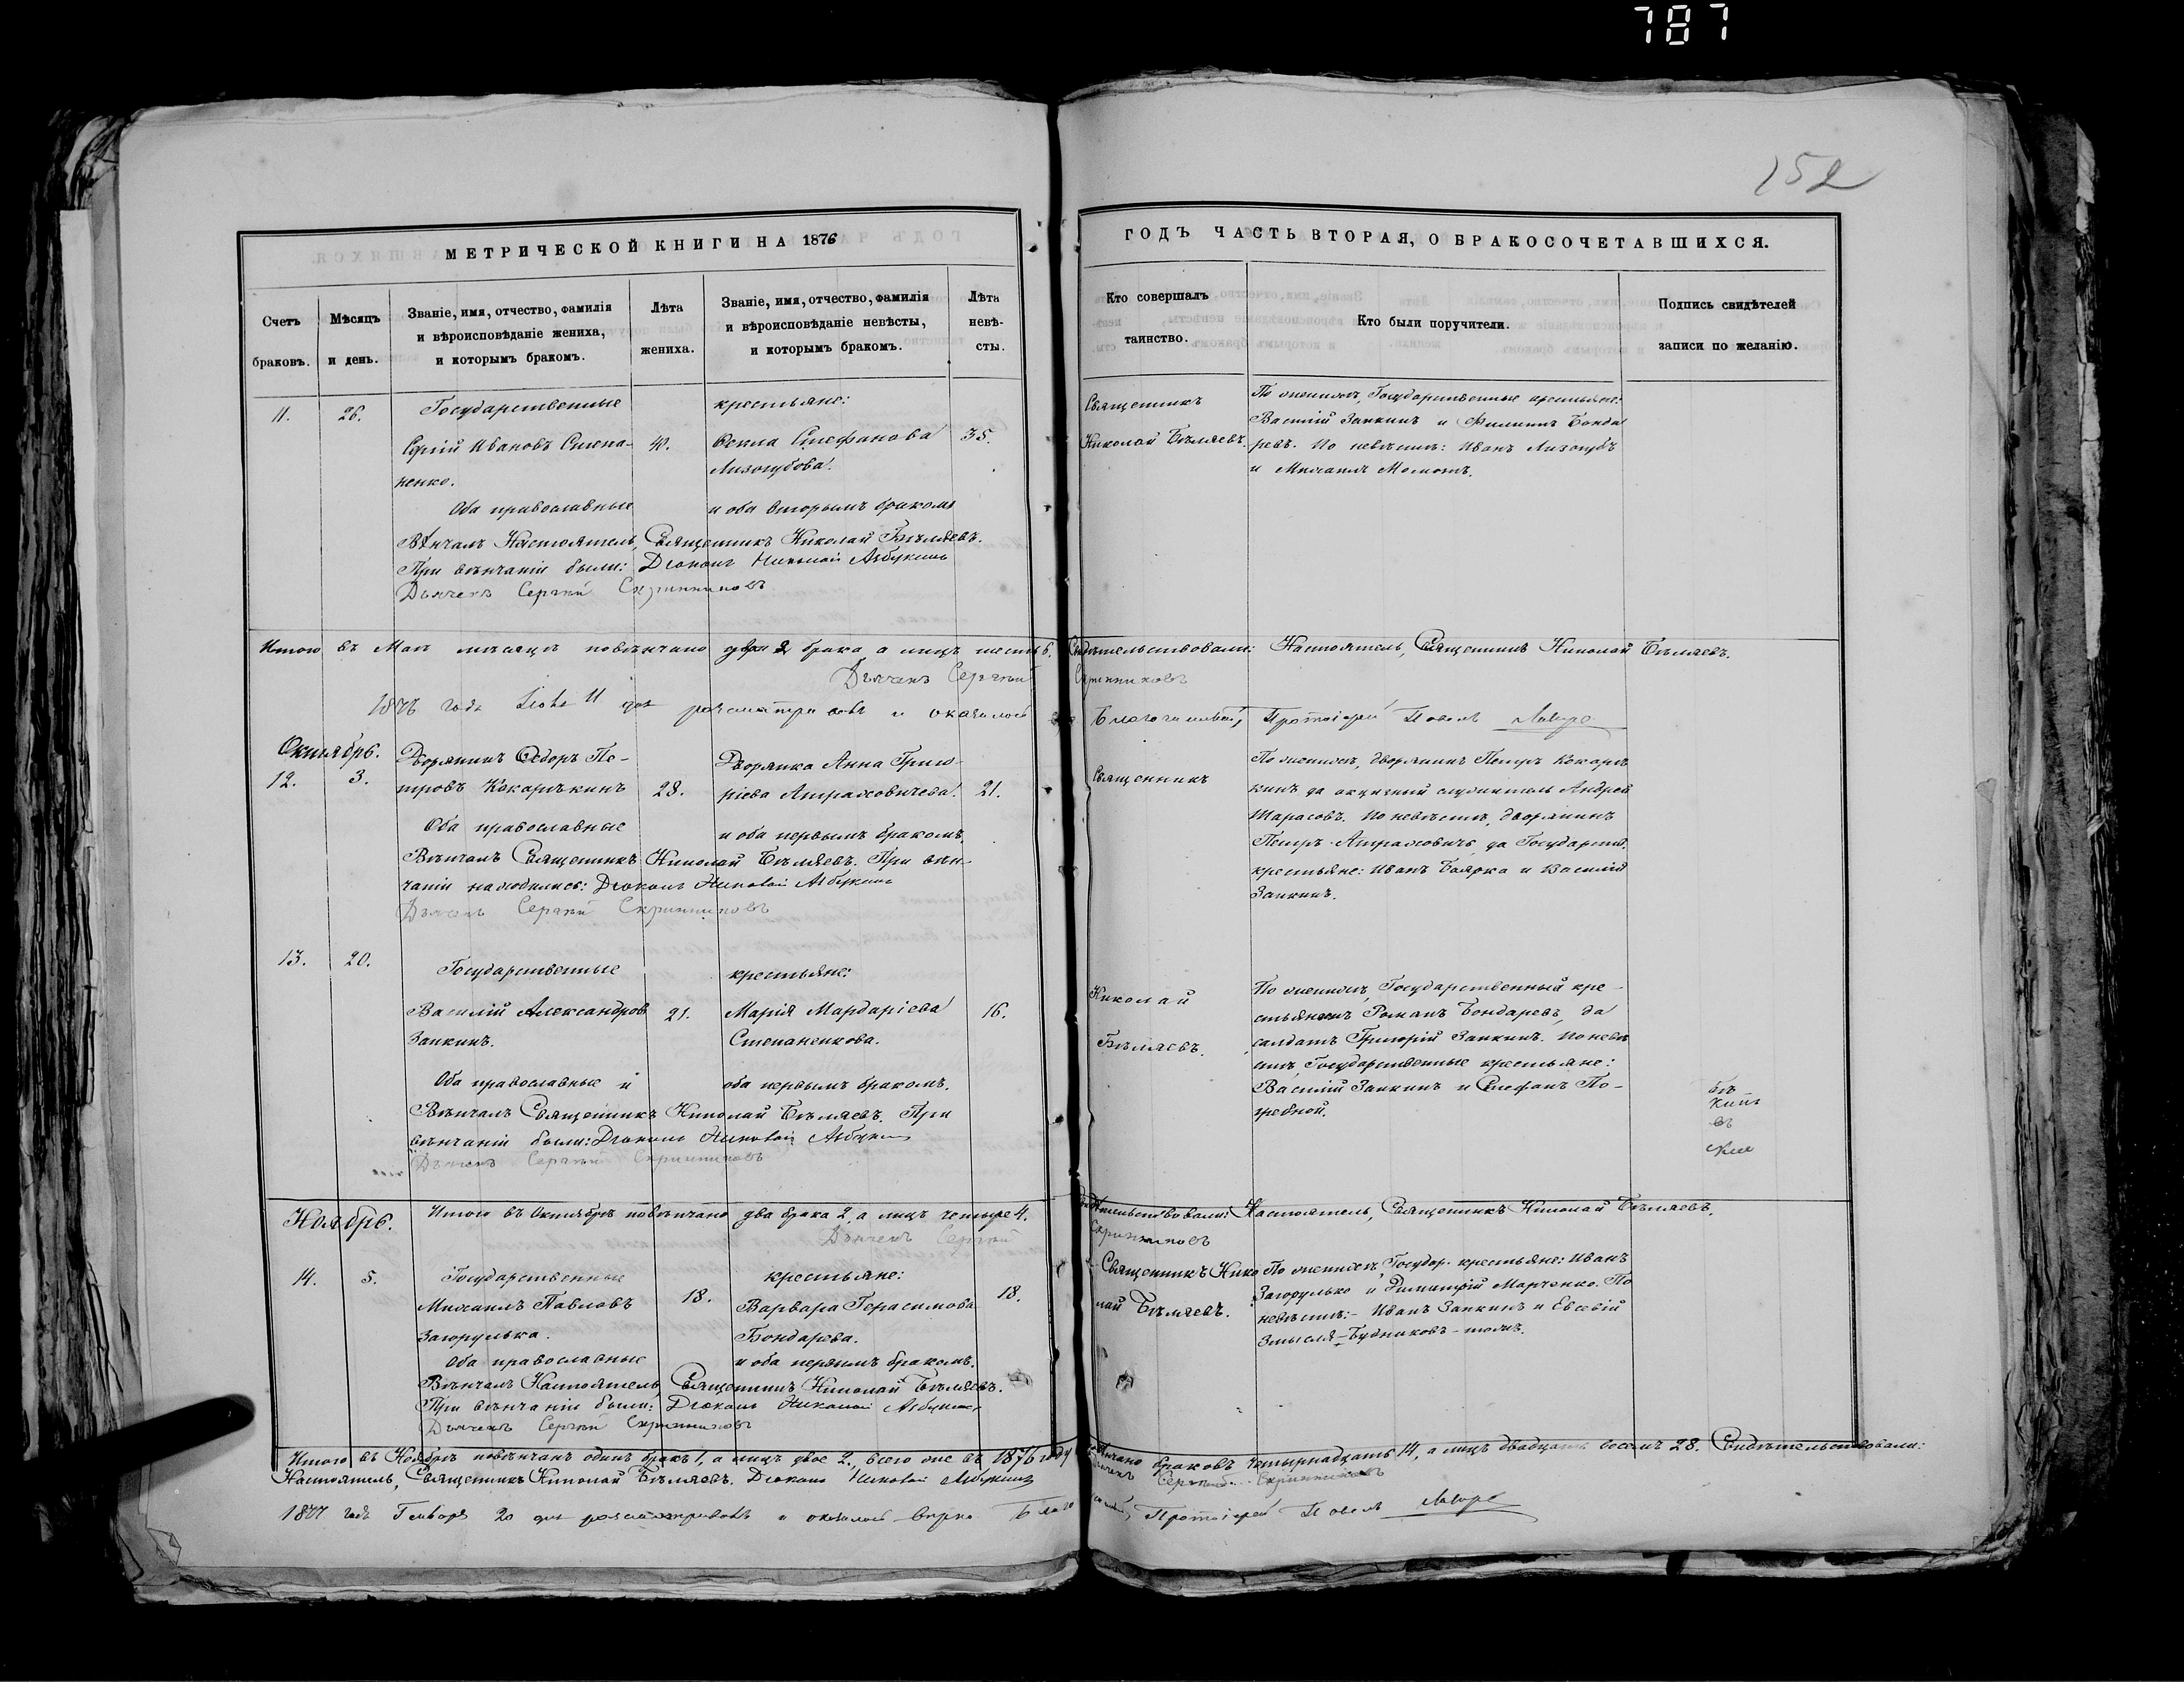 787
152
МЕТРИЧЕСКОЙ КНИГИ НА 1876
ГОДЪ ЧАСТЬ ВТОРАЯ, О БРАКОСОЧЕТАВШИХСЯ.
Счетъ браковъ.
Мѣсяцъ и день.
Званіе, имя, отчество, фамилія
и вѣроисповѣданіе жениха,
и которымъ бракомъ.
Лѣта
жениха.
Званіе, имя, отчество, фамилія
и вѣроисповѣданіе невѣсты,
и которымъ бракомъ.
Лѣта
невѣ-
сты.
Кто совершалъ
таинство.
Кто были поручители.
Подпись свидѣтелей
записи по желанію.
11. 26. Государственные крестьяне:
Сергій Ивановъ Степа- 42. Ѳекла Стефанова 35.
ненко. Лизогубова.
Оба православные и оба вторымъ бракомъ
Вѣнчалъ Настоятель, Священникъ Николай Бѣляевъ.
При вѣнчаніи были: Діаконъ Николай Азбукинъ
Дьячекъ Сергѣй Скрипниковъ
Священникъ
Николай Бѣляевъ.
По женихѣ, Государственные крестьяне:
Василій Заикинъ и Филиппъ Бонда
ревъ. По невѣстѣ: Иванъ Лизогубъ
и Михаилъ Момотъ.
Итого въ Маѣ мѣсяцѣ повѣнчано брака а лицъ шесть 6. Свидѣтельствовали: Настоятель, Священникъ Николай Бѣляевъ.
Дьячекъ Сергѣй Скрипниковъ
года 11 дня разсматривалъ и оказалось Благочинный, Протоіерей Павелъ
Октябрь.
12. 3. Дворянинъ Ѳедоръ Пе- Дворянка Анна Григо-
тровъ Кокарѣкинъ 28. ріева Атрахсовичева. 21.
Оба православные и оба первымъ бракомъ,
Вѣнчалъ Священникъ Николай Бѣляевъ. При вѣн-
чаніи находились: Діаконъ Николай Азбукинъ
Дьячекъ Сергѣй Скрипниковъ
Священникъ
По женихѣ, дворянинъ Петръ Кокарѣ
кинъ да акцизный служитель Андрей
Тарасовъ. По невѣстѣ, дворянинъ
Петръ Атрахсовичъ, да Государств.
крестьяне: Иванъ Боярка и Василій
Заикинъ.
13. 20. Государственные крестьяне:
Василій Александровъ 21. Марія Мардаріева 16.
Заикинъ. Степаненкова.
Оба православные и оба первымъ бракомъ.
Вѣнчалъ Священникъ Николай Бѣляевъ. При
вѣнчаніи были: Діаконъ Николай Азбукинъ
Дьячекъ Сергѣй Скрипниковъ
Николай
Бѣляевъ.
По женихѣ, Государственный кре-
стьянинъ Романъ Бондаревъ, да
салдатъ Григорій Заикинъ. По невѣ
стѣ, Государственные крестьяне:
Василій Заикинъ и Стефанъ По-
гребной.
Ноябрь. Итого въ Октябрѣ повѣнчано два брака 2, а лицъ четыре 4. Свидѣтельствовали: Настоятель, Священникъ Николай Бѣляевъ.
Дьячекъ Сергѣй Скрипниковъ
14. 5. Государственные крестьяне:
Михаилъ Павловъ 18. Варвара Герасимова 18.
Загорулька. Бондарева.
Оба православные и оба первымъ бракомъ.
Вѣнчалъ Настоятель, Священникъ Николай Бѣляевъ.
При вѣнчаніи были: Діаконъ Николай Азбукинъ
Дьячекъ Сергѣй Скрипниковъ
Священникъ Нико
лай Бѣляевъ.
По женихѣ, Государ. крестьяне: Иванъ
Загорулько и Димитрій Марченко. По
невѣстѣ:- Иванъ Заикинъ и Евсевій
Змысля-Будниковъ-тожъ.
Итого въ Ноябрѣ повѣнчанъ одинъ бракъ 1, а лицъ двое 2., всего же въ 1876 году повѣнчано браковъ четырнадцать 14, а лицъ двадцать восемь 28. Свидѣтельствовали:
Настоятель, Священникъ Николай Бѣляевъ. Діаконъ Николай Азбукинъ Дьячекъ Сергѣй Скрипниковъ
1877 года Генваря 20 дня разсматривалъ и оказалось вѣрно Благочинный, Протоіерей Павелъ